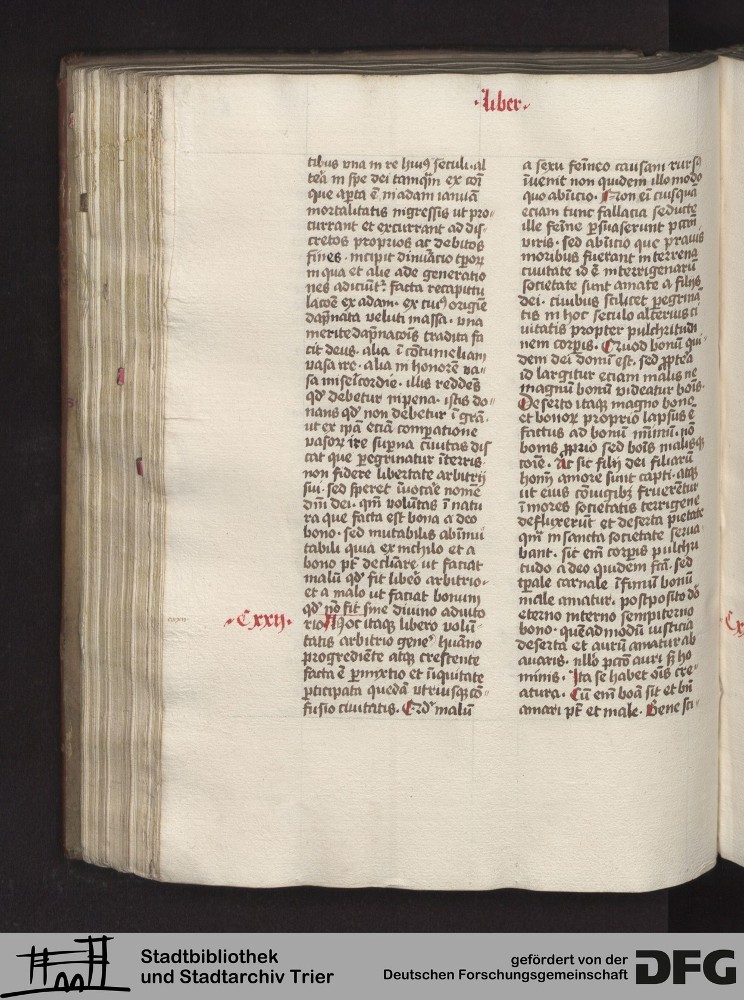 ·liber·
tibus vna in re huiꝰ seculi· al
tea in spe dei tamqm̄ ex coī
que aꝑta ē in adam ianua
mortalitatis ingressis ut pro-
currant et excurrant ad dis-
cretos proprios ac debitos
fines· incipit
in qua et alie ade generatio
nes adiciūt᷒· facta recapitu
lacōe ex adam· ex cuiꝰ origīe
dāpnata veluti massa· vna
merite dāpnacōis tradita fa
cit deus· alia ī cōtumeliam
vasa ire· alia in honorē va-
sa misēicordie· illis reddēs
qd̓ debetur in pena· istis do-
nans qd̓ non debetur ī grā·
ut ex ip̄a etiā comꝑatione
vasoꝝ ire suꝑna ciuitas dis
cat que ꝑegrinatur īterris·
non fidere libertate arbitrij
sui· sed speret īuocare nomē
dn̄i dei· qm̄ volūtas ī natu
ra que facta est bona a deo
bono· sed mutabilis ab īmui
tabili quia ex nichilo et a
bono pt̄ declinare ut faciat
malū qd̓ fit libeō arbitrio·
et a malo ut faciat bonum
qd̓ nō fit sine diuino adiuto
rio Hoc itaqꝫ libero volū-
·Cxxij·
tatis arbitrio geneͬ hūano
progrediēte atqꝫ crescente
facta ē ꝑmyxtio et īiquitate
ꝑticipata quedā vtriusqꝫ cō-
fusio ciuitatis· Qd̓ malū
a sexu femīeo causam rursꝰ
īuenit non quidem illo modo
quo ab īicio· Non eī cuiusqua
eciam tunc fallacia seducte
ille femīe ꝑsuaserunt pccm̄
viris· sed ab īitio que prauis
moribus fuerant in terrena
ciuitate id ē in terrigenarū
societate sunt amate a filijs
dei· ciuibus scilicet ꝑegrina
tis in hoc seculo alterius ci
uitatis propter pulchritudi
nem corꝑis· Quod bonū qui-
dem dei donū est· sed ꝓpterea
id largitur eciam malis ne
magnū bonū videatur boīs·
Deserto itaqꝫ magno bono
et bonoꝝ proprio lapsus ē
factus ad bonū mīmū· nō
bonis ꝓprio sed boīs malisqꝫ
cōie· Ac sic filij dei filiarū
homī amore sunt capti· atqꝫ
ut eius cōiugibꝫ fruerētur
ī mores societatis terrigene
defluxerūt et deserta pietate
qm̄ in sancta societate serua-
bant· sic em̄ corꝑis pulchri
tudo a deo quidem fc̄a· sed
tꝑale carnale īfimū bonū
male amatur· postposito dō
eterno interno sempiterno
bono· quēadmodū iusticia
deserta et aurū amatur ab
auaris· nllō pccō auri sꝫ ho
minis· Ita se habet oīs cre-
atura· Cū em̄ boā sit et bn̄
amari pt̄ et male· Bene sci-
Stadtbibliothek
und Stadtarchiv Trier
gefördert von der
Deutschen Forschungsgemeinschaft DFG